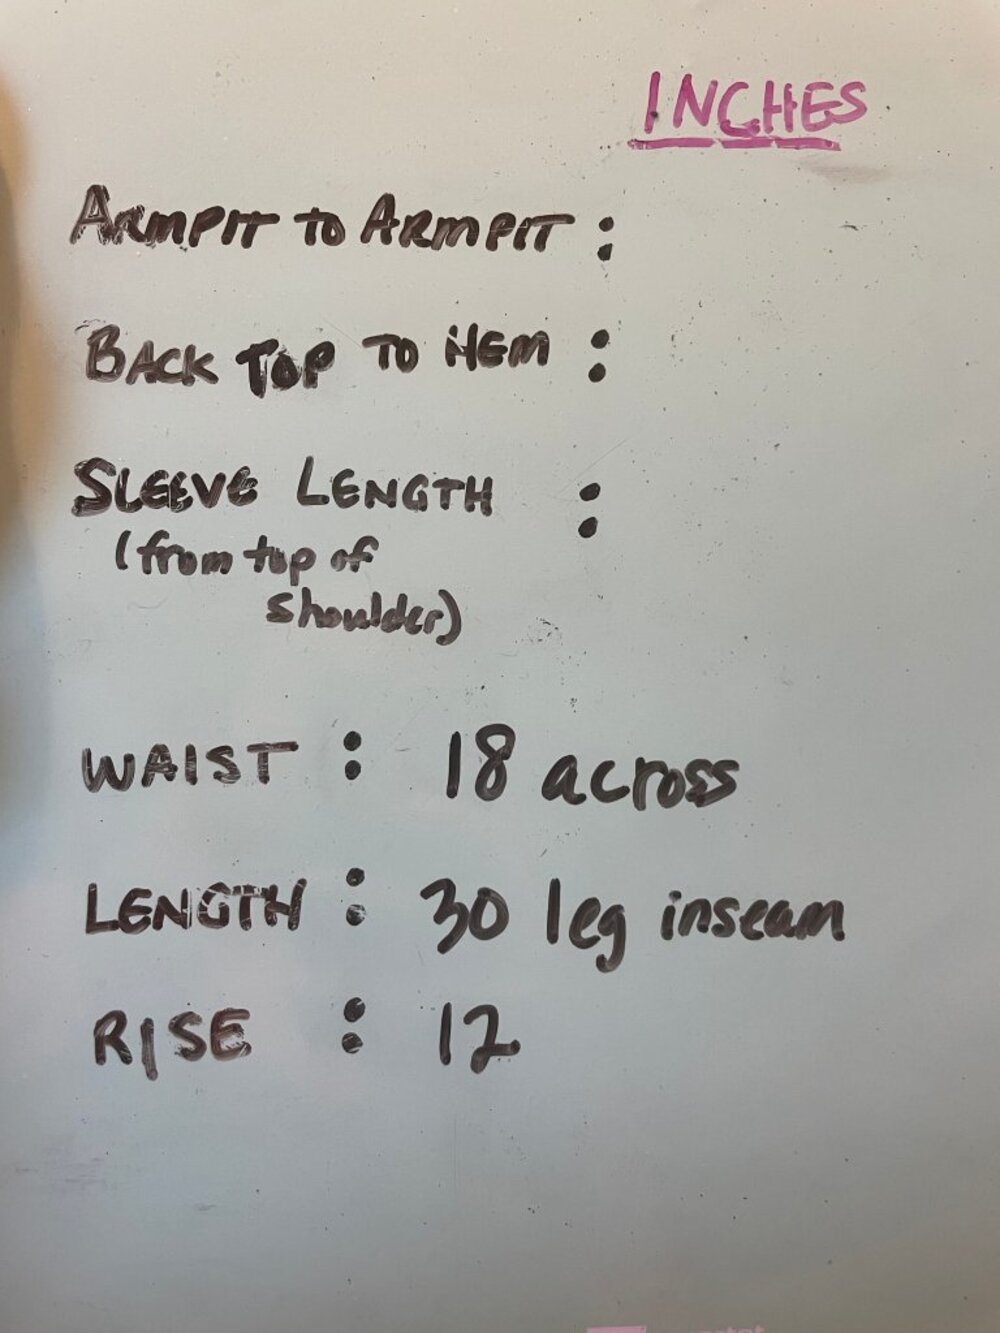 INCHES
ARMPIT TO ARMPIT :
BACK TOP TO HEM :
SLEEVE LENGTH :
(from top of
shoulder)
WAIST : 18 across
LENGTH : 30 leg inseam
RISE : 12